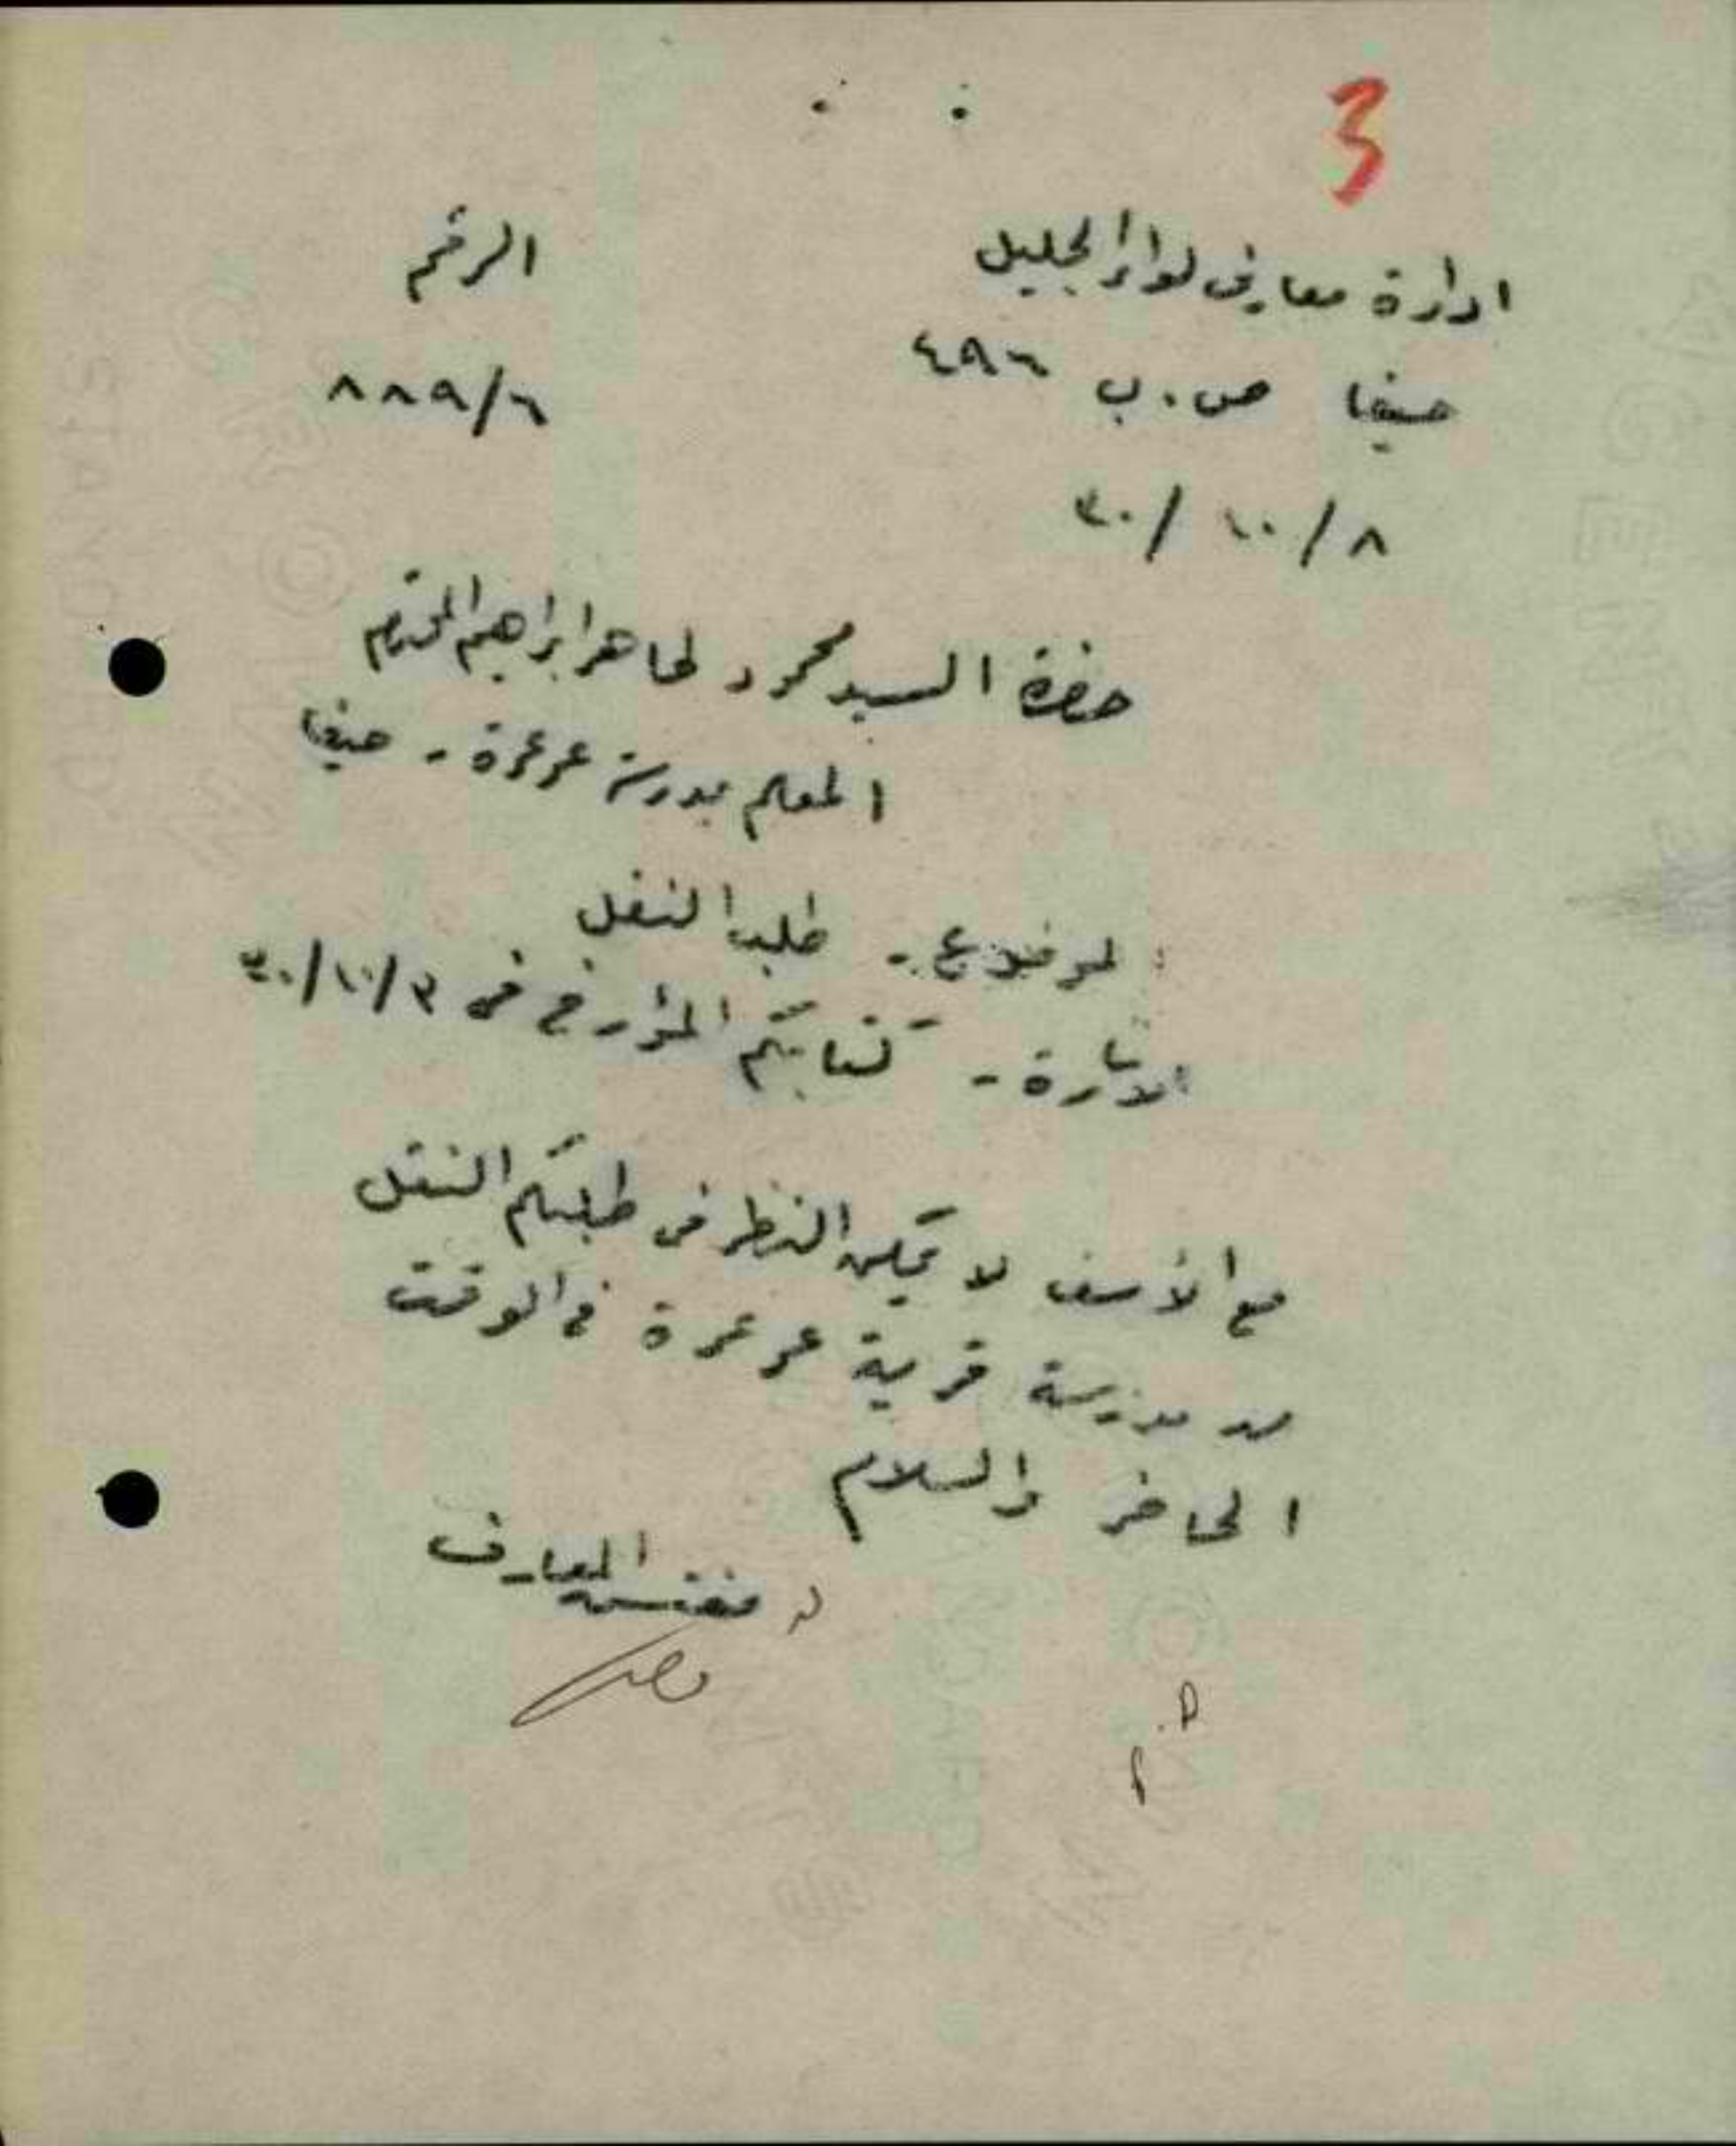 3
ادارة معارف لواء الجليل
الرقم
حيفا ص.ب ٤٩٦
٨٨٩/٦
٨/١٠/٤٠
حضرة السيد محمود طاهر ابراهيم المحترم
المعلم بمدرسة عرعرة - حيفا
الموضوع - طلب النقل
الاشارة - كتابكم المؤرخ في ٣/١٠/٤٠
مع الأسف لا يمكن النظر في طلبكم النقل
من مدرسة قرية عرعرة في الوقت
الحاضر والسلام
مفتش المعارف